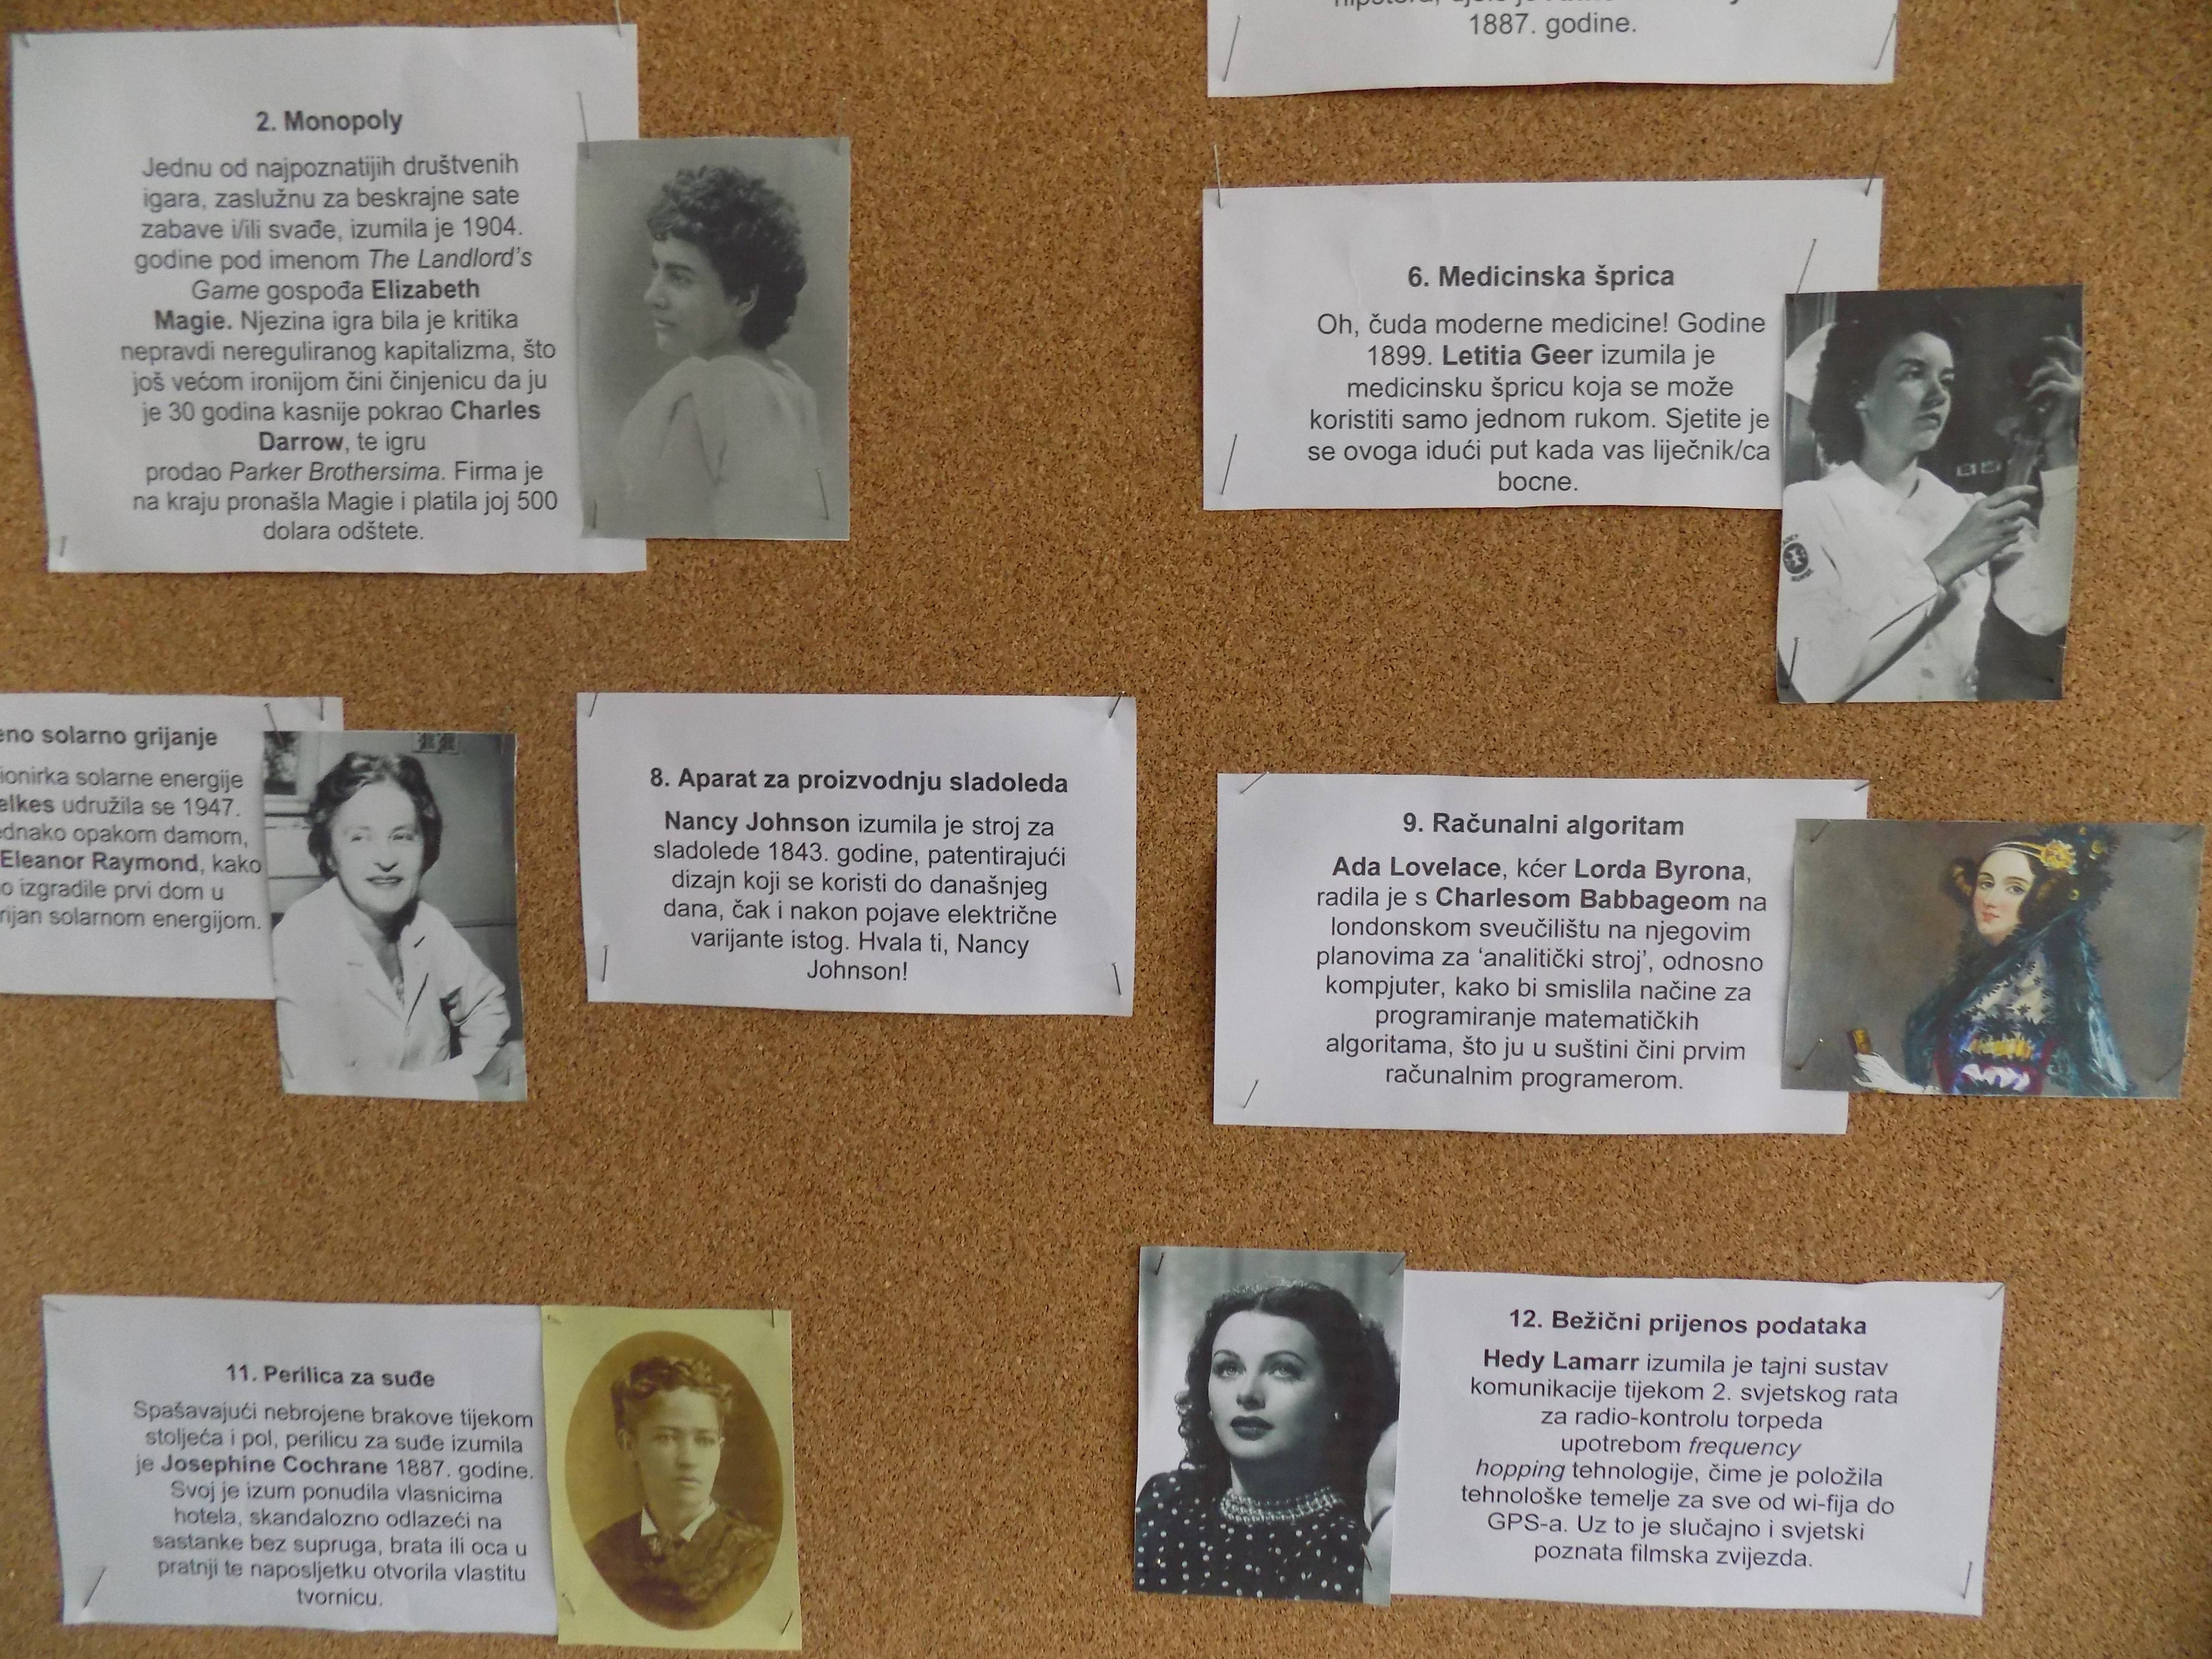 1887. godine.
2. Monopoly
Jednu od najpoznatijih društvenih
igara, zaslužnu za beskrajne sate
zabave i/ili svađe, izumila je 1904.
godine pod imenom The Landlord's
Game gospođa Elizabeth
Magie. Njezina igra bila je kritika
nepravdi nereguliranog kapitalizma, što
još većom ironijom čini činjenicu da ju
je 30 godina kasnije pokrao Charles
Darrow, te igru
prodao Parker Brothersima. Firma je
na kraju pronašla Magie i platila joj 500
dolara odštete.
6. Medicinska šprica
Oh, čuda moderne medicine! Godine
1899. Letitia Geer izumila je
medicinsku špricu koja se može
koristiti samo jednom rukom. Sjetite je
se ovoga idući put kada vas liječnik/ca
bocne.
solarno grijanje
solarne energije
udružila se 1947.
opakom damom,
Eleanor Raymond, kako
izgradile prvi dom u
solarnom energijom.
8. Aparat za proizvodnju sladoleda
Nancy Johnson izumila je stroj za
sladolede 1843. godine, patentirajući
dizajn koji se koristi do današnjeg
dana, čak i nakon pojave električne
varijante istog. Hvala ti, Nancy
Johnson!
9. Računalni algoritam
Ada Lovelace, kćer Lorda Byrona,
radila je s Charlesom Babbageom na
londonskom sveučilištu na njegovim
planovima za ‘analitički stroj’, odnosno
kompjuter, kako bi smislila načine za
programiranje matematičkih
algoritama, što ju u suštini čini prvim
računalnim programerom.
11. Perilica za suđe
Spašavajući nebrojene brakove tijekom
stoljeća i pol, perilicu za suđe izumila
je Josephine Cochrane 1887. godine.
Svoj je izum ponudila vlasnicima
hotela, skandalozno odlazeći na
sastanke bez supruga, brata ili oca u
pratnji te naposljetku otvorila vlastitu
tvornicu.
12. Bežični prijenos podataka
Hedy Lamarr izumila je tajni sustav
komunikacije tijekom 2. svjetskog rata
za radio-kontrolu torpeda
upotrebom frequency
hopping tehnologije, čime je položila
tehnološke temelje za sve od wi-fija do
GPS-a. Uz to je slučajno i svjetski
poznata filmska zvijezda.